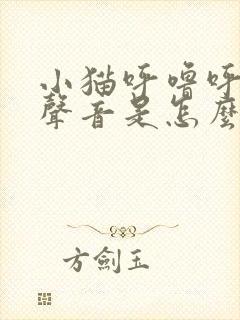 小猫呼噜呼
聲音是怎麼
方劍玉